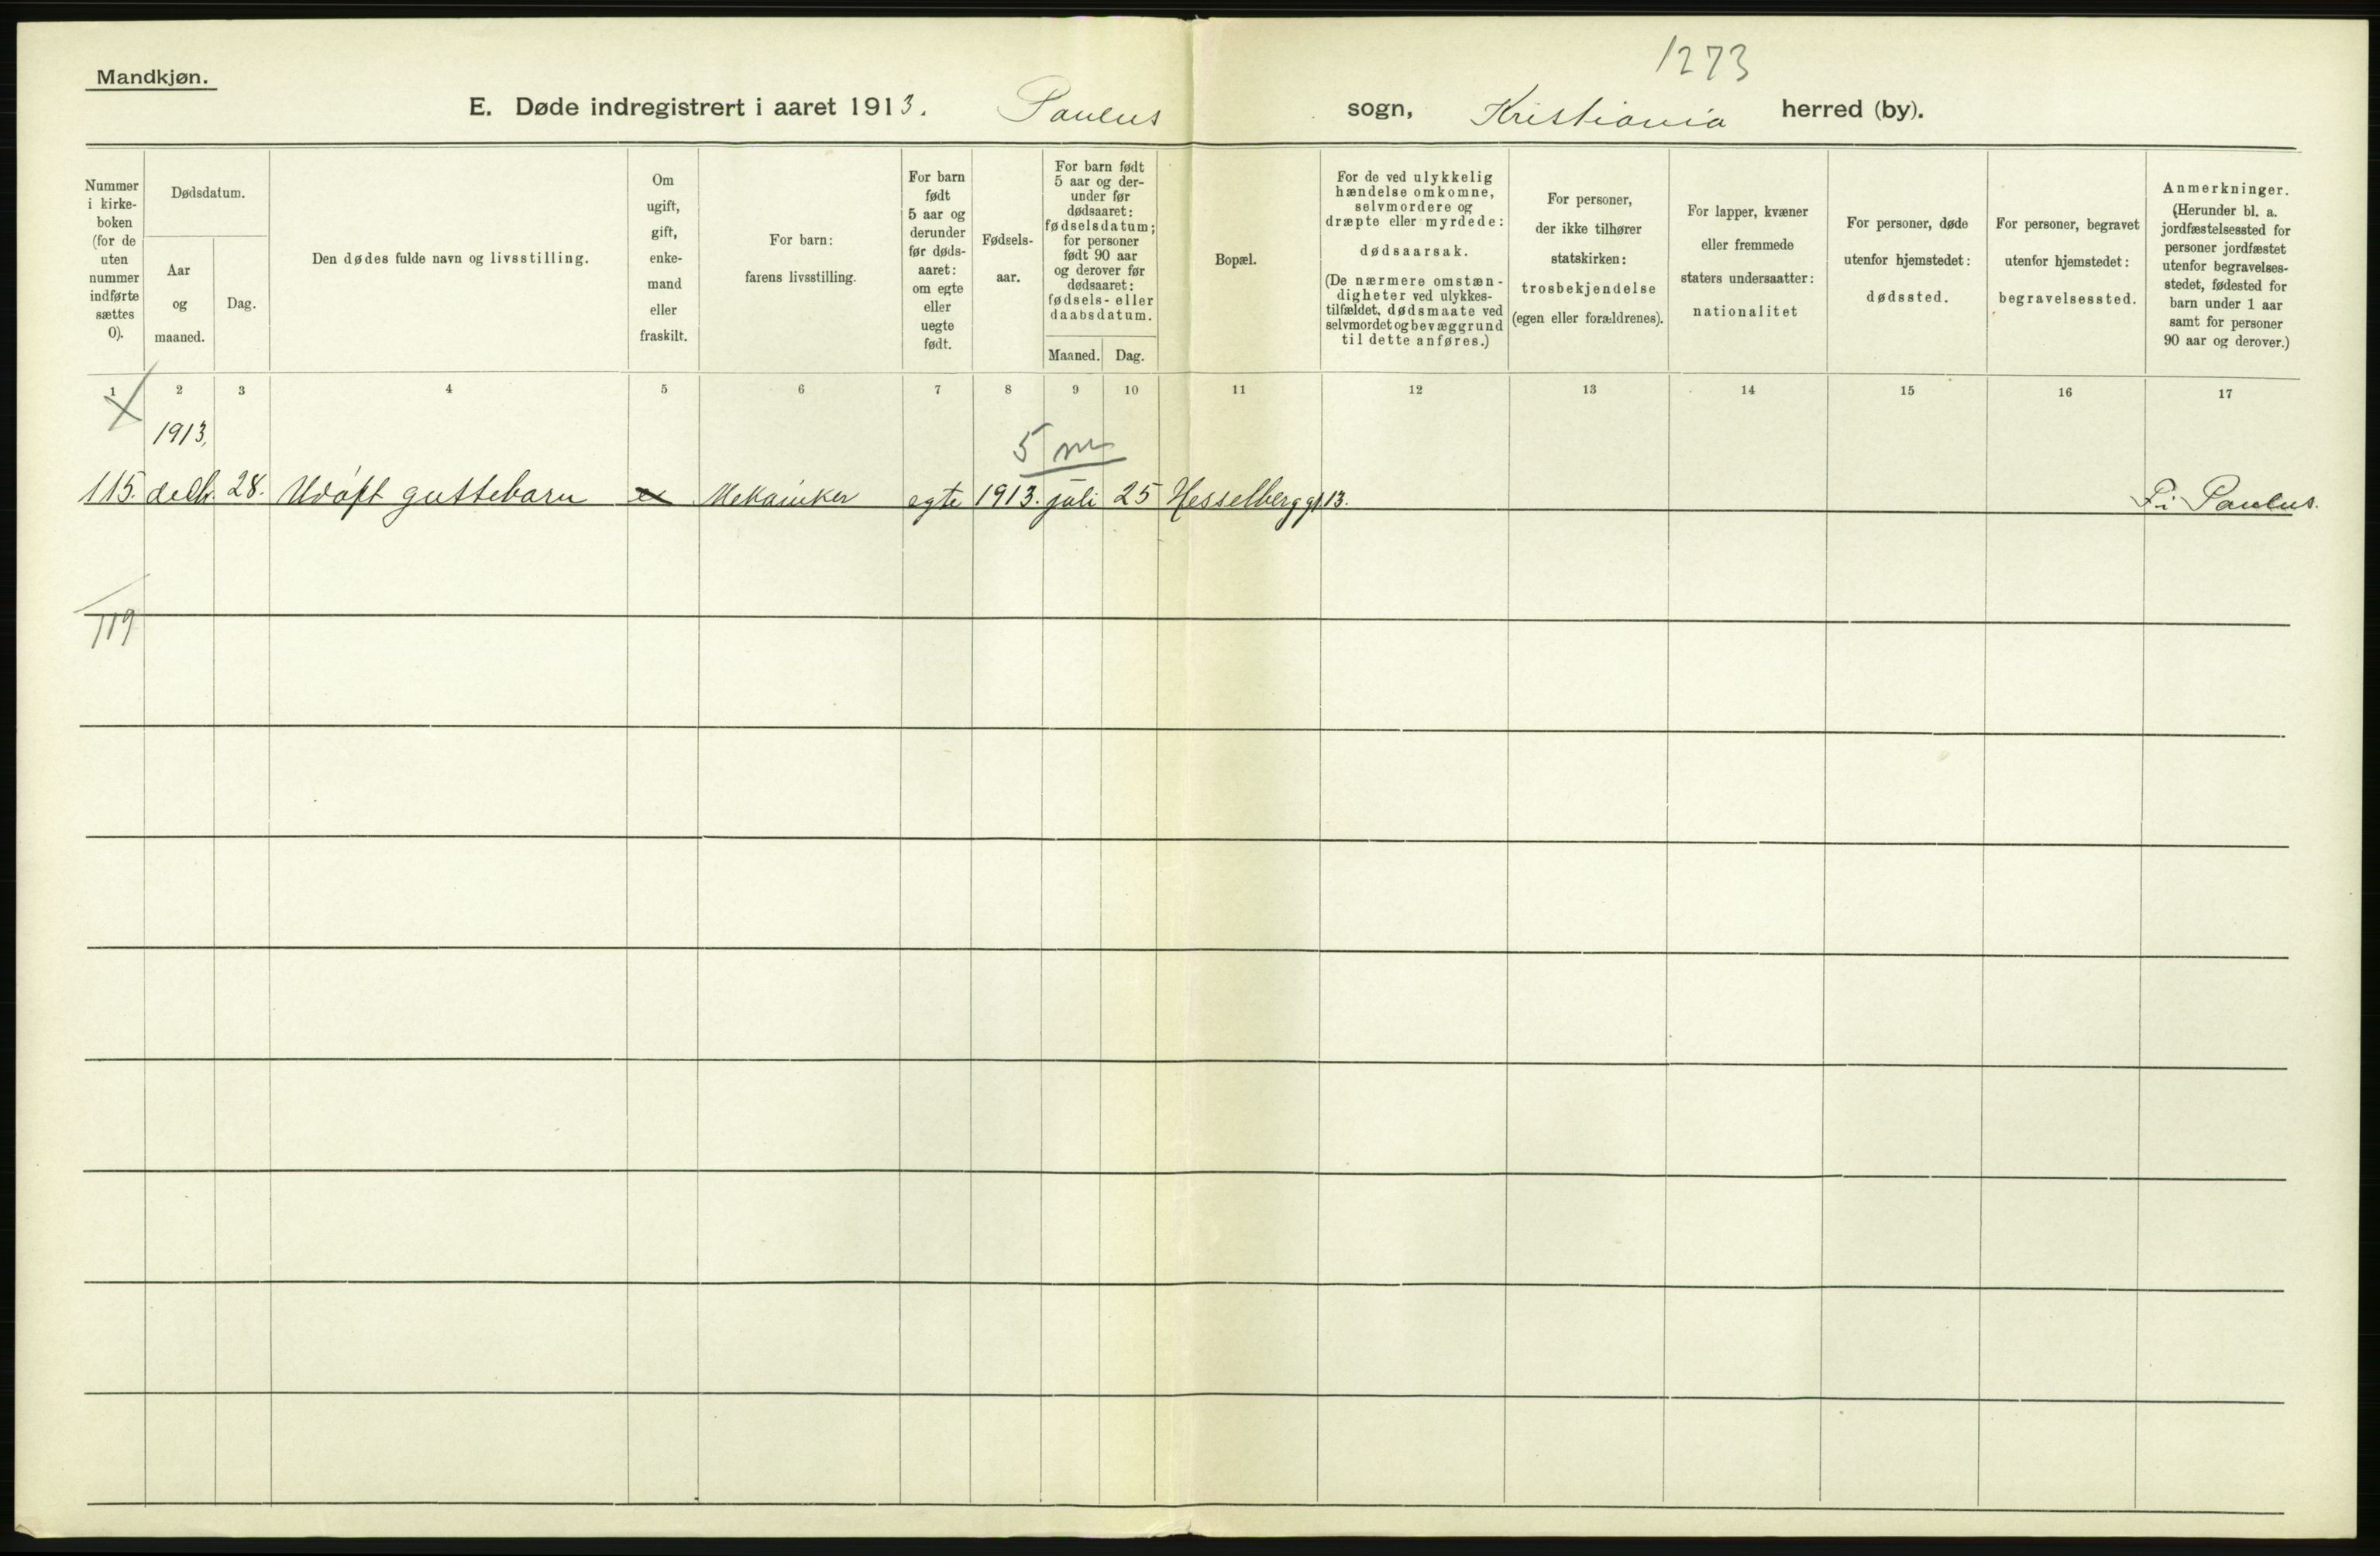 1273
Mandkjøn.
E. Døde indregistrert i aaret 1913. Paulus sogn, Kristiania herred (by).
Nummer
i kirke-
boken
(for de
uten
nummer
indførte
sættes
0).
Dødsdatum.
Aar
og
maaned.
Dag.
Den dødes fulde navn og livsstilling.
Om
ugift,
gift,
enke-
mand
eller
fraskilt.
For barn:
farens livsstilling.
For barn
født
5 aar og
derunder
før døds-
aaret:
om egte
eller
uegte
født.
Fødsels-
aar.
For barn født
5 aar og der-
under før
dødsaaret:
fødselsdatum;
for personer
født 90 aar
og derover før
dødsaaret:
fødsels- eller
daabsdatum.
Maaned. Dag.
Bopæl.
For de ved ulykkelig
hændelse omkomne,
selvmordere og
dræpte eller myrdede:
dødsaarsak.
(De nærmere omstæn-
digheter ved ulykkes-
tilfældet, dødsmaate ved
selvmordet og bevæggrund
til dette anføres.)
For personer,
der ikke tilhører
statskirken:
trosbekjendelse
(egen eller forældrenes).
For lapper, kvæner
eller fremmede
staters undersaatter:
nationalitet
For personer, døde
utenfor hjemstedet:
dødssted.
For personer, begravet
utenfor hjemstedet:
begravelsessted.
Anmerkninger.
(Herunder bl. a.
jordfæstelsessted for
personer jordfæstet
utenfor begravelses-
stedet, fødested for
barn under 1 aar
samt for personer
90 aar og derover.)
1 2 3 4 5 6 7 8 9 10 11 12 13 14 15 16 17
1913,
5 m
115. decb. 28. Udøpt guttebarn Mekaniker egte 1913. juli 25 Hesselberggt. 13. F. i Paulus.
119